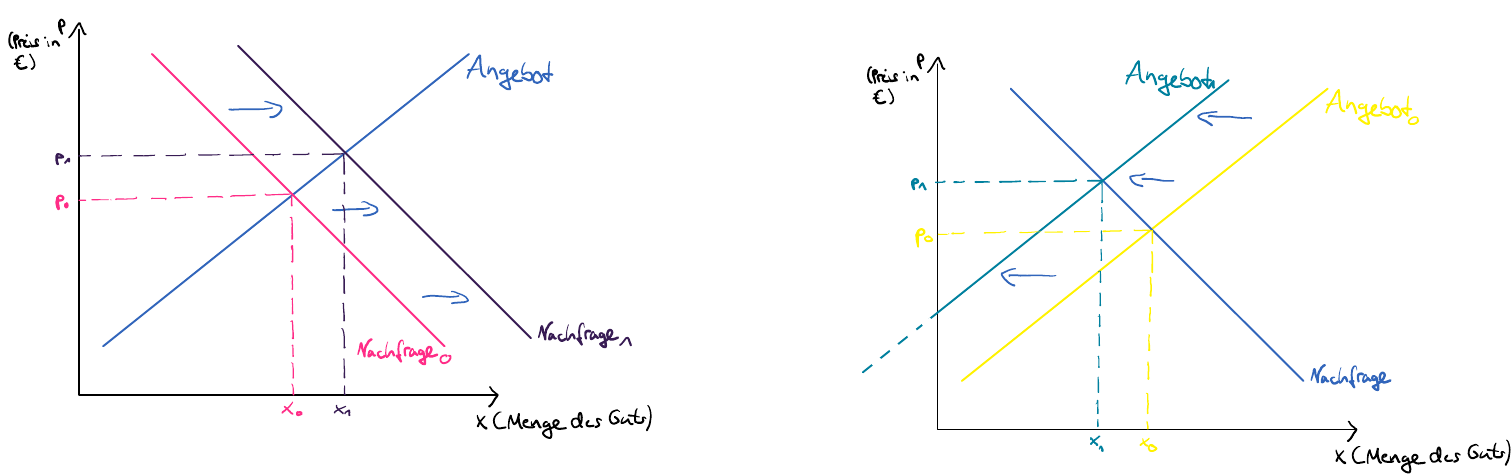 (Preis in P
€)
Angebot
P₁
P₀
Nachfrage₁
Nachfrage₀
x₀ x₁
x (Menge des Guts)
(Preis in P
€)
Angebot₁
Angebot₀
P₁
P₀
Nachfrage
x₁ x₀
x (Menge des Guts)